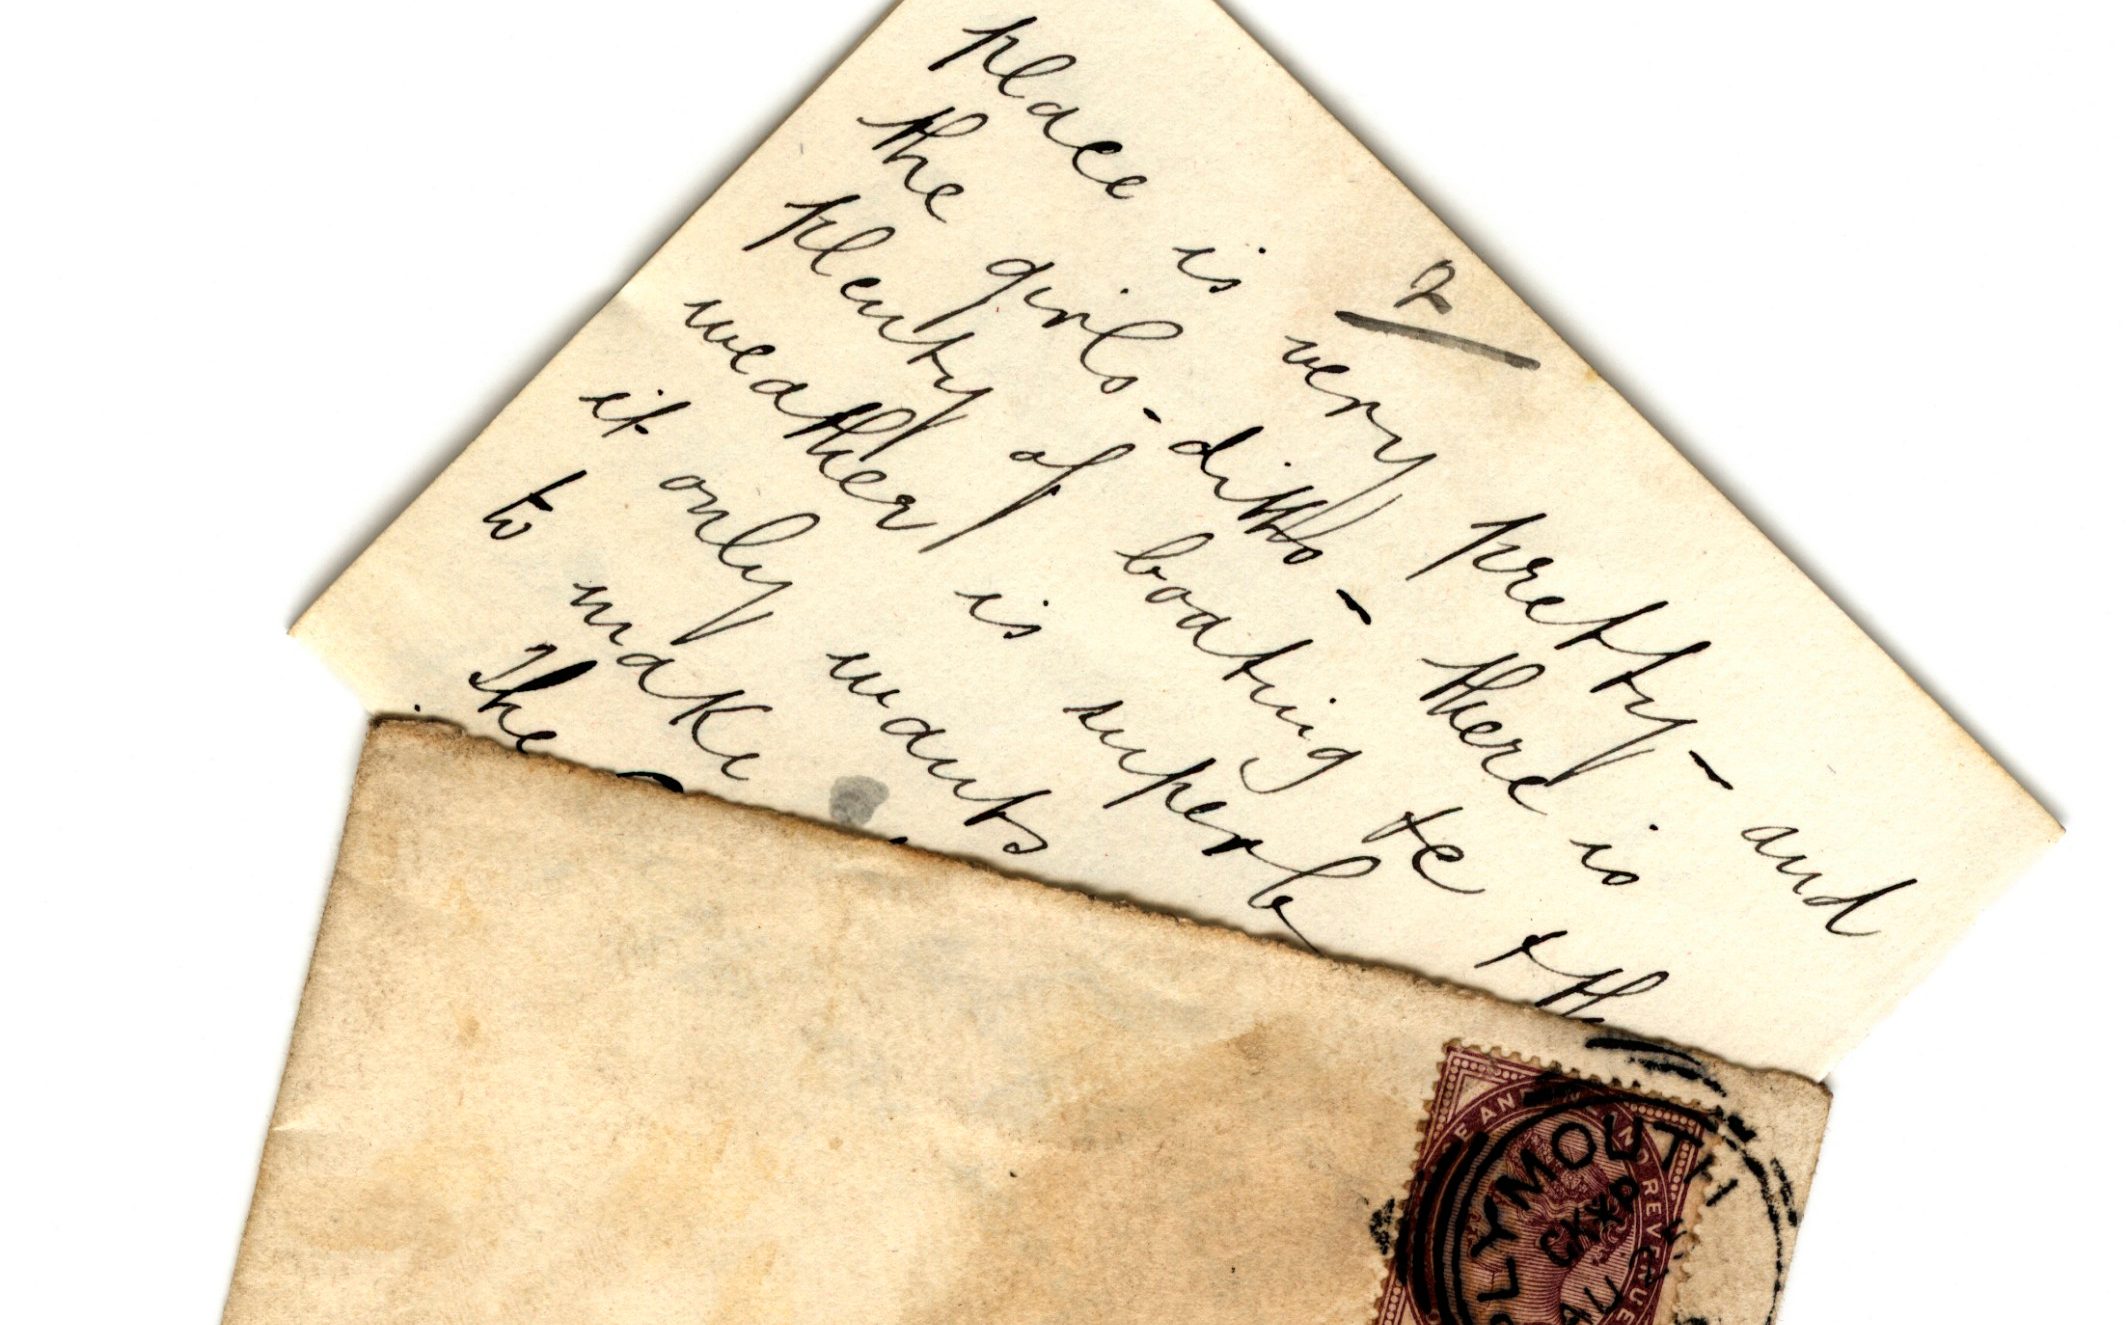 2
place is very pretty - and
the girls - ditto - there is
plenty of boating &c the
weather is superb
it only wants
to make
The
AND
REVENUE
PLYMOUTH
CKXP
AU